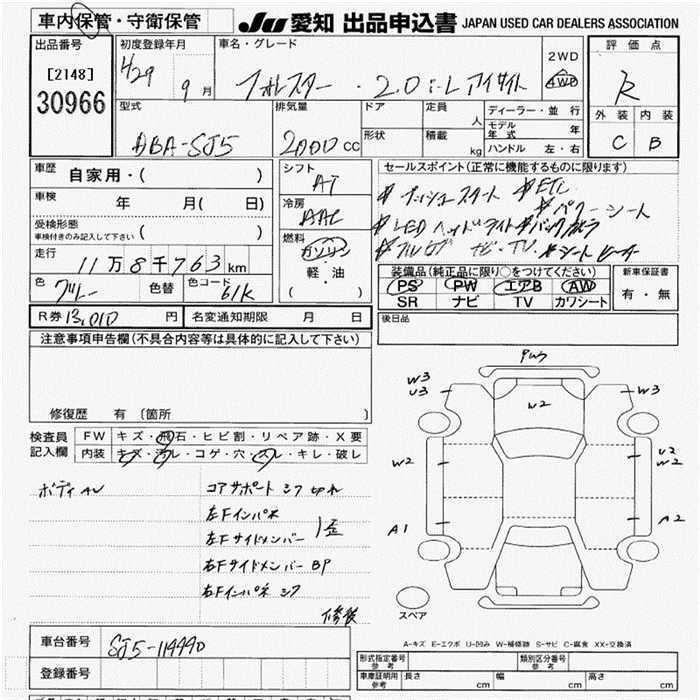 車内保管・守衛保管
JU 愛知 出品申込書 JAPAN USED CAR DEALERS ASSOCIATION
出品番号
[2148]
30966
初度登録年月
H29 9月
車名・グレード
フォレスター・2.0i-L アイサイト
2WD
4WD
評価点
R
外装 内装
C B
型式
DBA-SJ5
排気量
2000cc
ドア
形状
定員 人
積載 kg
ディーラー・並行
モデル年式 年
ハンドル 左・右
車歴 自家用・( )
車検 年 月( 日)
受検形態
車検付きのみ記入して下さい ( )
走行 11万8千763km
色 グレー 色替 色コード 61K
シフト
AT
冷房
AAC
燃料
ガソリン
軽・油
( )
セールスポイント(正常に機能するものに限ります)
#プッシュスタート #ETC
#パワーシート
#LEDヘッドライト #バックカメラ
#フルセグ ナビ・TV #シートヒーター
装備品(純正品に限り○をつけてください)
PS PW エアB AW
SR ナビ TV カワシート
新車保証書
有・無
R券 13,010円 名変通知期限 月 日
後日品
注意事項申告欄(不具合内容等は具体的に記入して下さい)
修復歴 有 〔箇所 〕
検査員記入欄
FW キズ・飛石・ヒビ割・リペア跡・X要
内装 キズ・汚レ・コゲ・穴・スレ・キレ・破レ
ボディAU
コアサポートシワ切れ
左Fインパネ
左Fサイドメンバー 1歪
右Fサイドメンバー BP
右Fインパネ シワ
修復
PW3
W3
U3
W2
W3
W2
U2
W2
A1
A2
スペア
A-キズ E-エクボ U-凹み W-補修跡 S-サビ C-腐食 XX-交換済
車台番号 SJ5-114440
登録番号
形式指定番号
参考
類別区分番号
参考
車庫証明用
参考
長さ cm 幅 cm 高さ cm